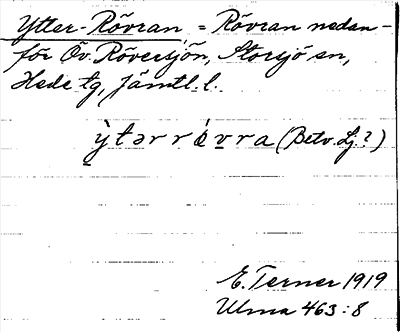 Ytter-Rövran = Rövran nedan-
för Öv. Röversjön, Storsjö sn,
Hede tg, Jämtl. l.
ỳtərrö́vra (Betv. Lj.?)
E. Terner 1919
Ulma 463:8